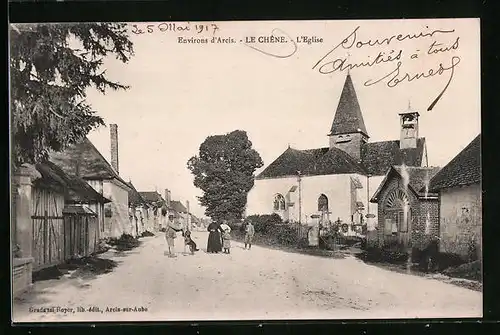 Le 5 Mai 1917
Environs d'Arcis. - LE CHÊNE. - L'Eglise
Souvenir
Amitiés à tous
Ernest
Boyer, lib. édit., Arcis-sur-Aube